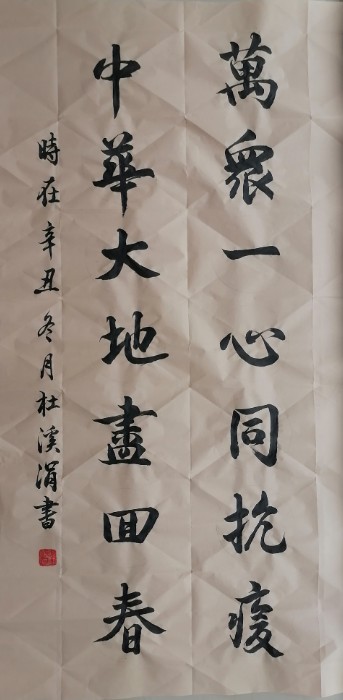 萬衆一心同抗疫
中華大地盡回春
時在辛丑冬月杜溪涓書